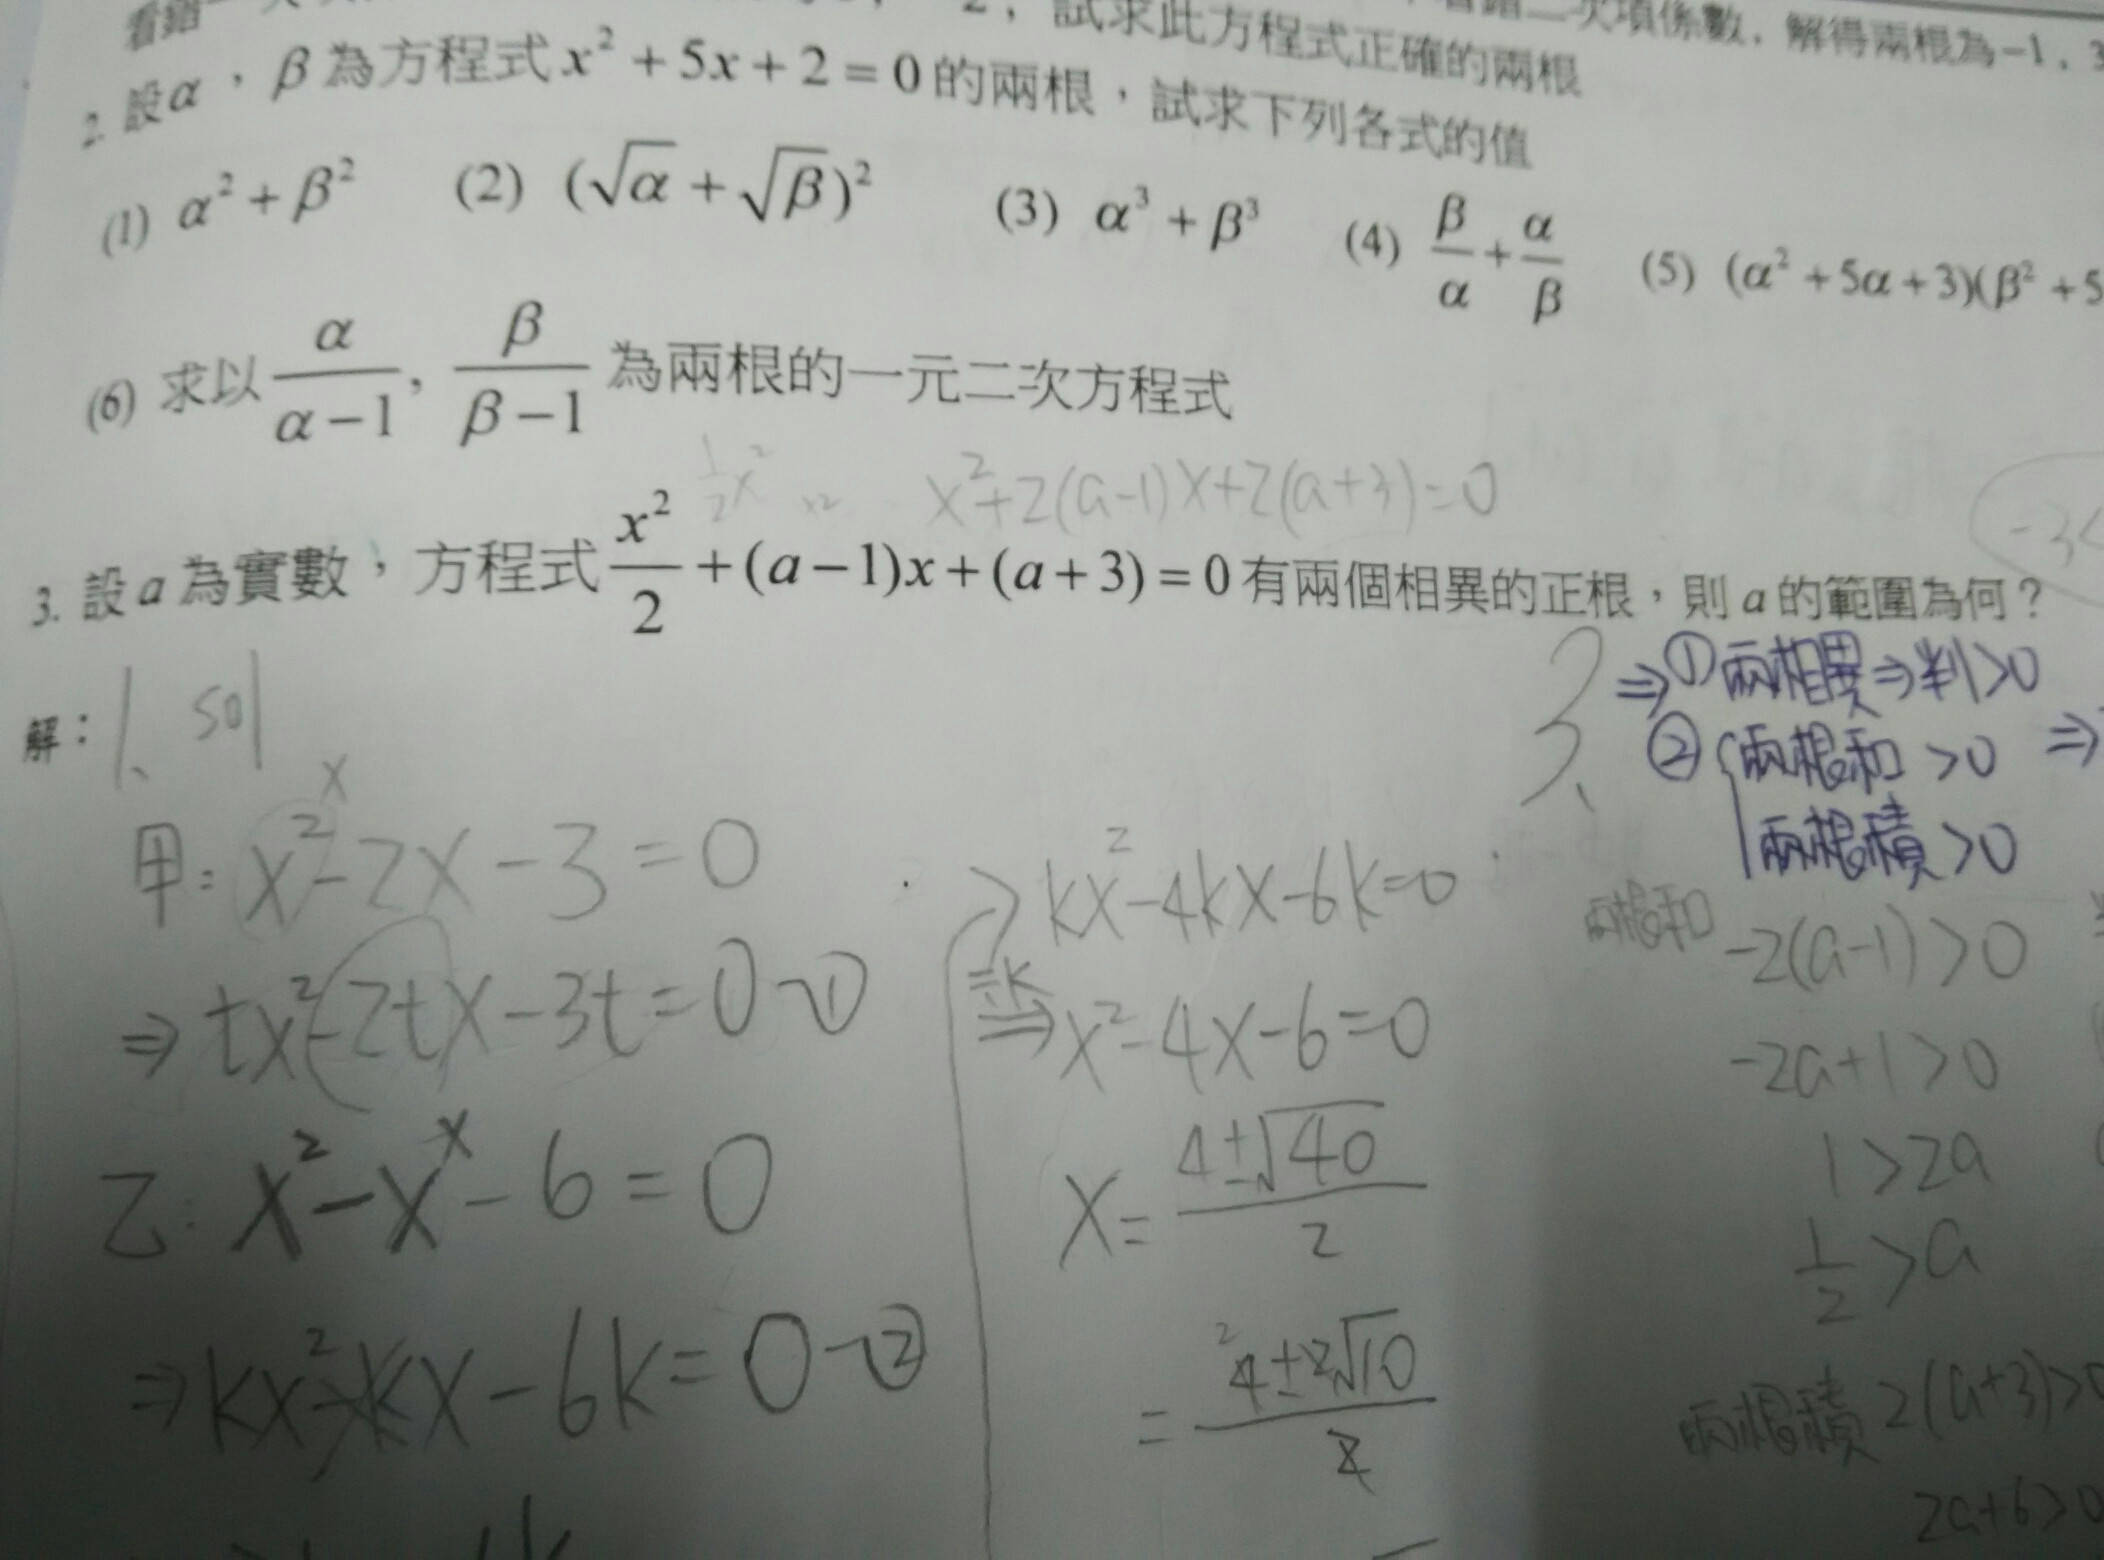 看錯
2，試求此方程式正確的兩根
看錯二次項係數，解得兩根為-1，3
2. 設α，β為方程式x²+5x+2=0的兩根，試求下列各式的值
(1) α²+β² (2) (√α+√β)² (3) α³+β³ (4) β/α+α/β (5) (α²+5α+3)(β²+5
(6) 求以 α/(α-1), β/(β-1) 為兩根的一元二次方程式
½x² ×2 x²+2(a-1)x+2(a+3)=0
-3<
3. 設a為實數，方程式 x²/2+(a-1)x+(a+3)=0有兩個相異的正根，則a的範圍為何？
解：1、sol
甲：x²-2x-3=0
⇒tx²-2tx-3t=0~①
乙：x²-x-6=0
⇒kx²-kx-6k=0~②
kx²-4kx-6k=0
÷k
⇒x²-4x-6=0
x=(4±√40)/2
=(4±2√10)/2
3、
⇒①兩相異⇒判>0
②{兩根和>0 ⇒
兩根積>0
兩根和 -2(a-1)>0
-2a+1>0
1>2a
½>a
兩根積 2(a+3)>0
2a+6>0